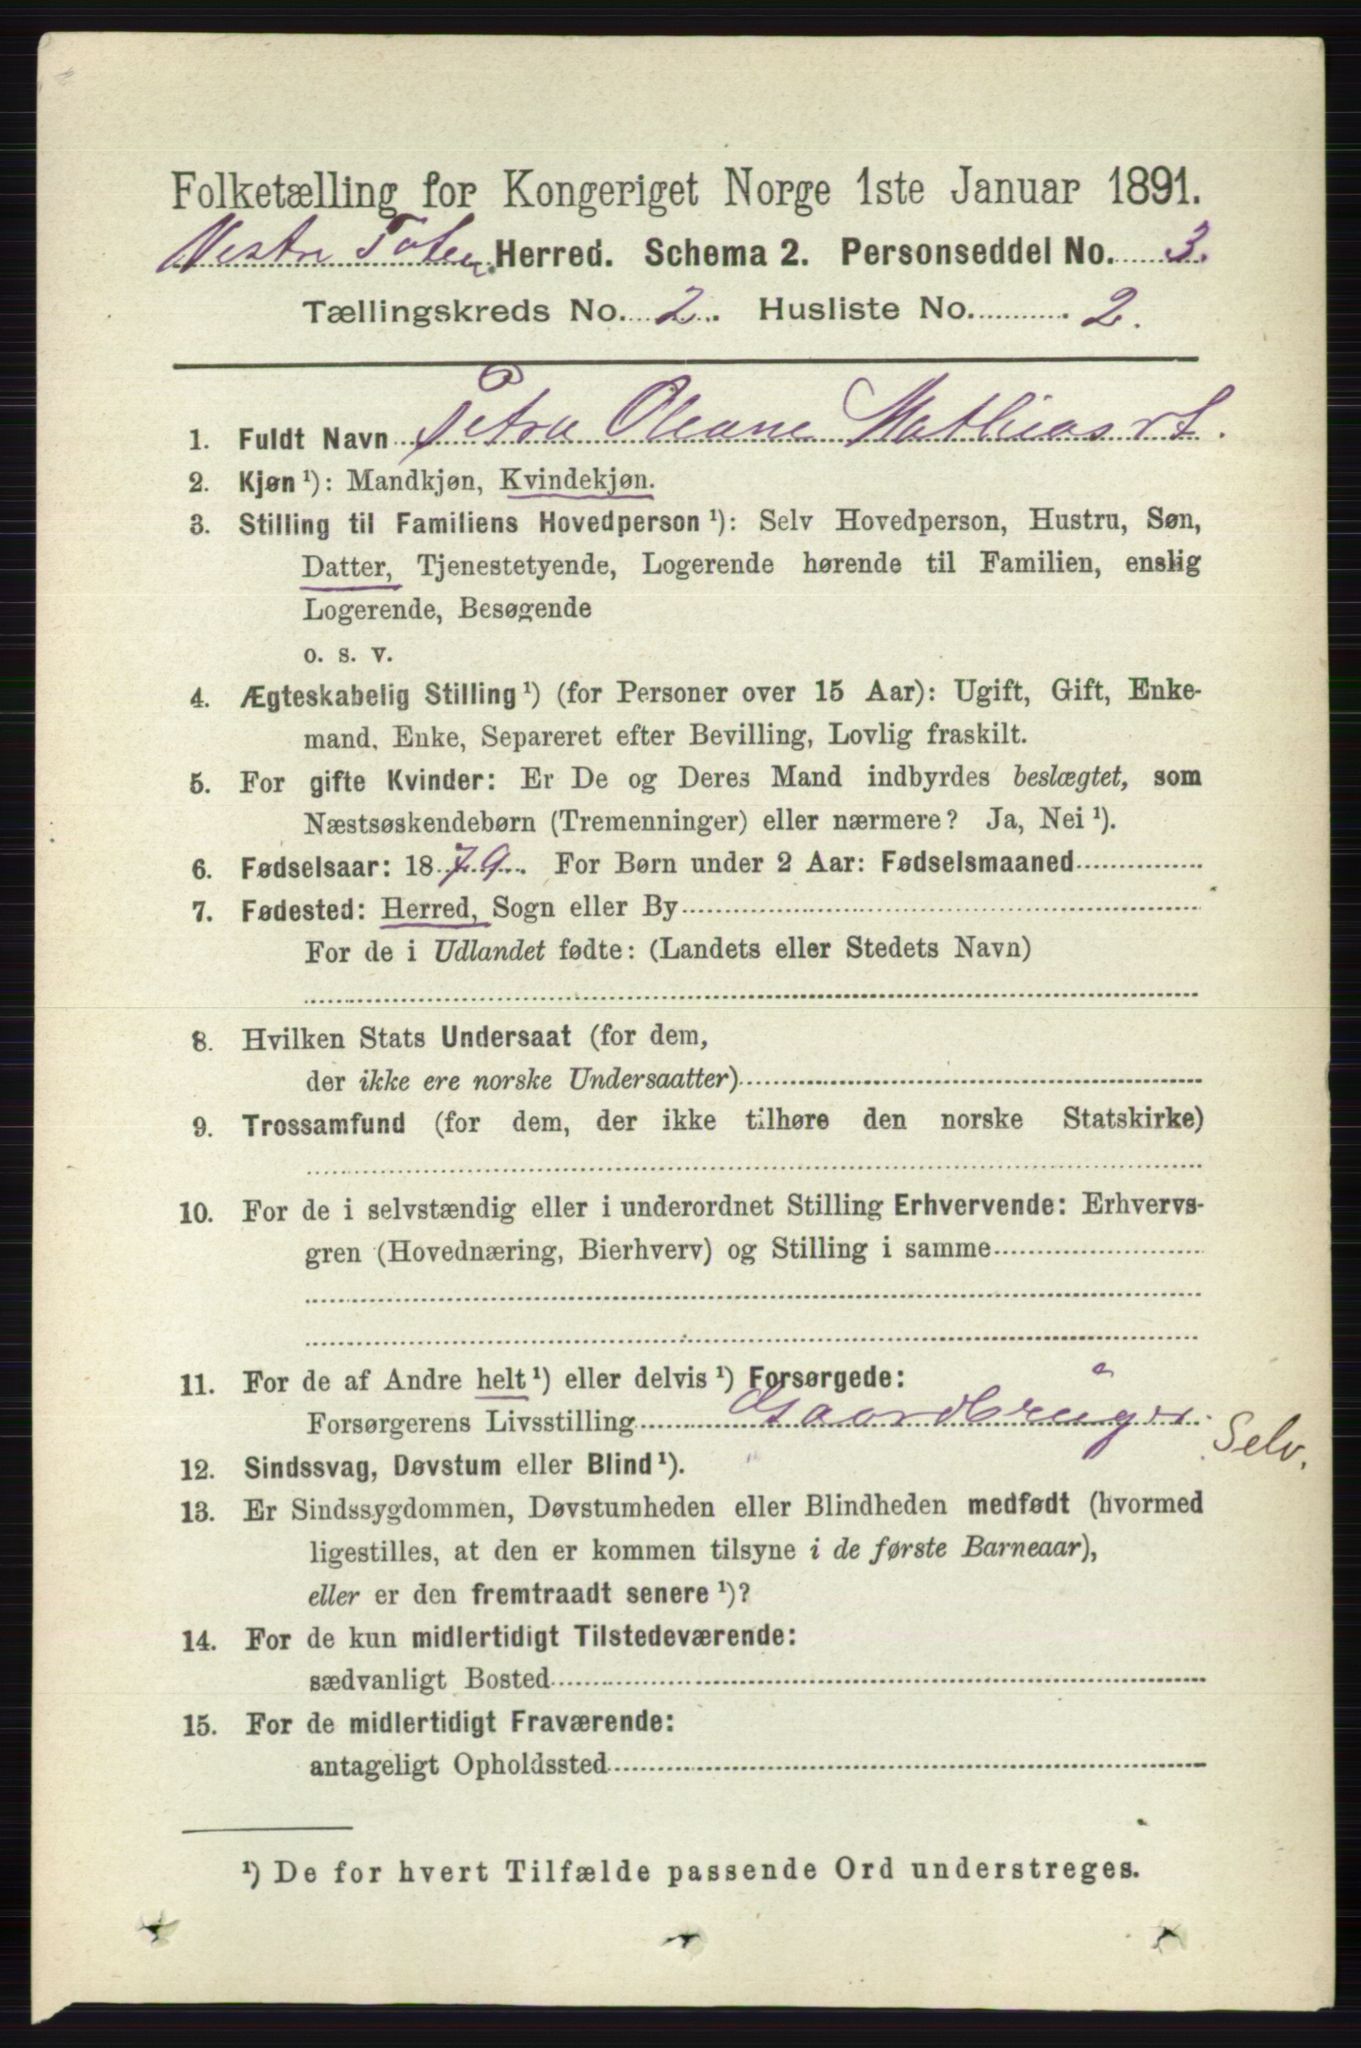 Folketælling for Kongeriget Norge 1ste Januar 1891.
Vestre Toten Herred. Schema 2. Personseddel No. 3.
Tællingskreds No. 2. Husliste No. 2.
1. Fuldt Navn Petra Oleane Mathiasdt.
2. Kjøn ¹): Mandkjøn, Kvindekjøn.
3. Stilling til Familiens Hovedperson ¹): Selv Hovedperson, Hustru, Søn,
Datter, Tjenestetyende, Logerende hørende til Familien, enslig
Logerende, Besøgende
o. s. v.
4. Ægteskabelig Stilling ¹) (for Personer over 15 Aar): Ugift, Gift, Enke-
mand, Enke, Separeret efter Bevilling, Lovlig fraskilt.
5. For gifte Kvinder: Er De og Deres Mand indbyrdes beslægtet, som
Næstsøskendebørn (Tremenninger) eller nærmere? Ja, Nei ¹).
6. Fødselsaar: 1879. For Børn under 2 Aar: Fødselsmaaned
7. Fødested: Herred, Sogn eller By
For de i Udlandet fødte: (Landets eller Stedets Navn)
8. Hvilken Stats Undersaat (for dem,
der ikke ere norske Undersaatter)
9. Trossamfund (for dem, der ikke tilhøre den norske Statskirke)
10. For de i selvstændig eller i underordnet Stilling Erhvervende: Erhvervs-
gren (Hovednæring, Bierhverv) og Stilling i samme
11. For de af Andre helt ¹) eller delvis ¹) Forsørgede:
Forsørgerens Livsstilling Gaardbruger.
Selv.
12. Sindssvag, Døvstum eller Blind ¹).
13. Er Sindssygdommen, Døvstumheden eller Blindheden medfødt (hvormed
ligestilles, at den er kommen tilsyne i de første Barneaar),
eller er den fremtraadt senere ¹)?
14. For de kun midlertidigt Tilstedeværende:
sædvanligt Bosted
15. For de midlertidigt Fraværende:
antageligt Opholdssted
¹) De for hvert Tilfælde passende Ord understreges.